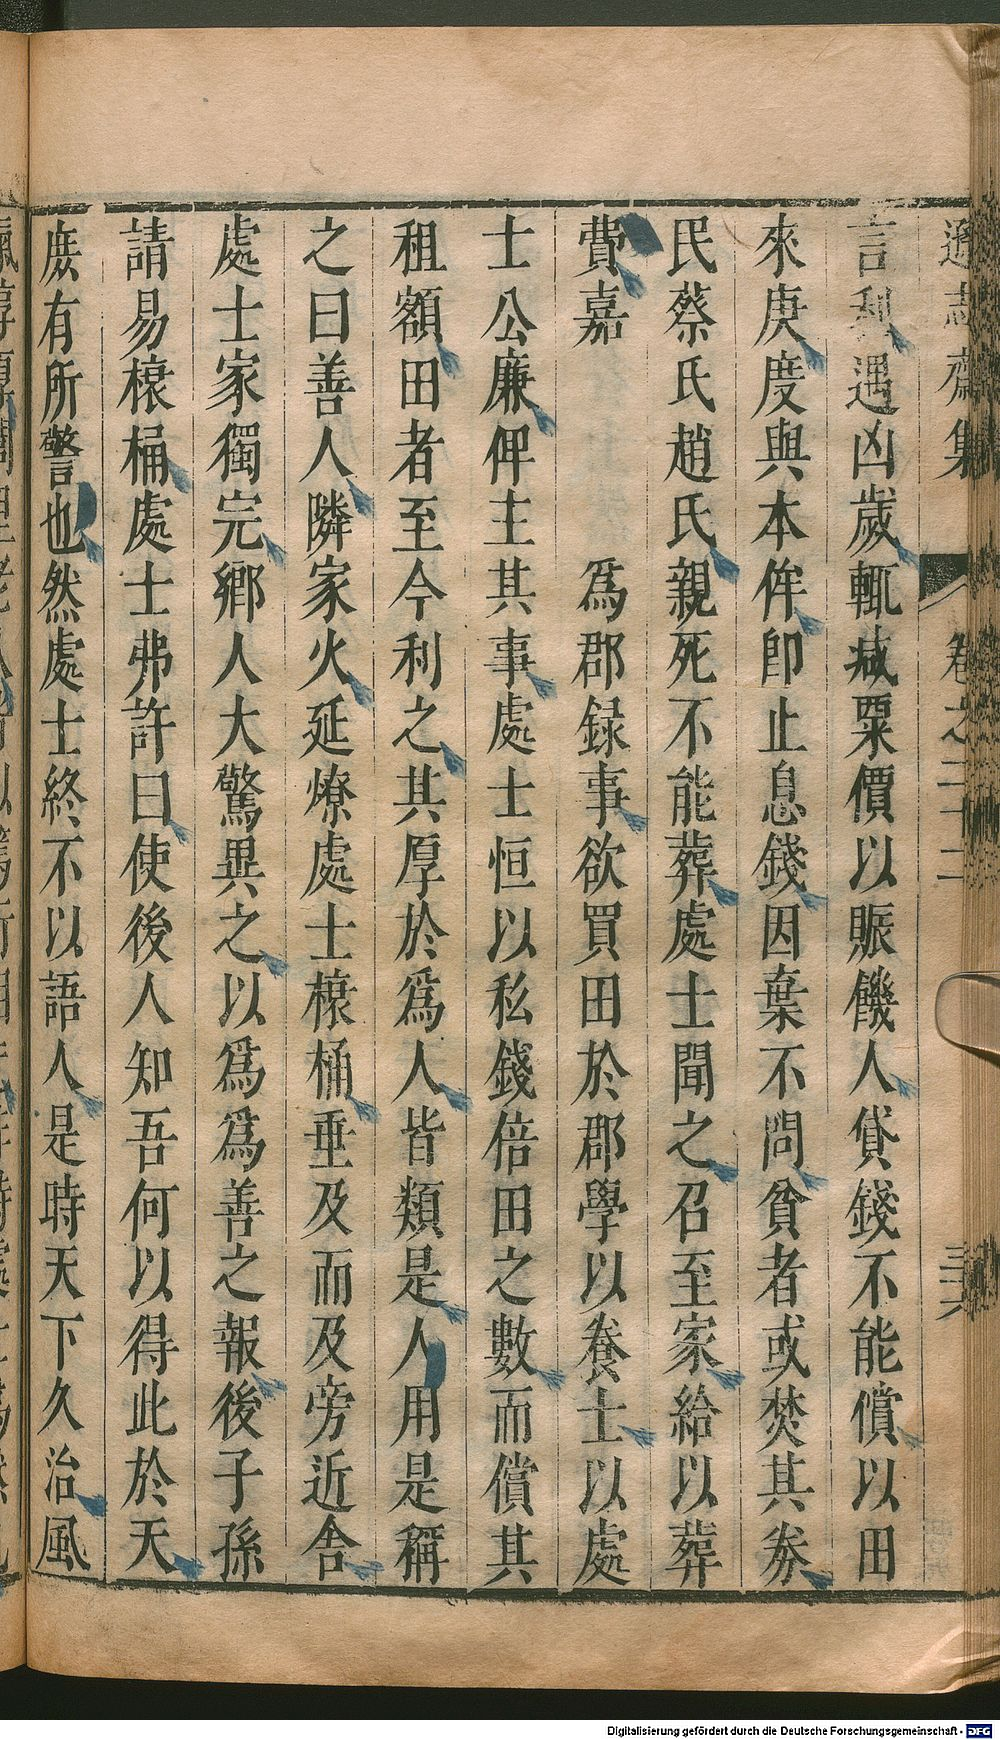 遜志齋集 卷之二十二 三六
言利遇凶歲輒減粟價以賑饑人貸錢不能償以田
來庚度與本侔即止息錢因棄不問貧者或焚其券
民蔡氏趙氏親死不能葬處士聞之召至家給以葬
費嘉 爲郡録事欲買田於郡學以養士以處
士公廉俾主其事處士恒以私錢倍田之數而償其
租額田者至今利之其厚於爲人皆類是人用是稱
之曰善人隣家火延燎處士榱桶垂及而及旁近舍
處士家獨完鄉人大驚異之以爲爲善之報後子孫
請易榱桶處士弗許曰使後人知吾何以得此於天
庶有所警也然處士終不以語人是時天下久治風
Digitalisierung gefördert durch die Deutsche Forschungsgemeinschaft - DFG